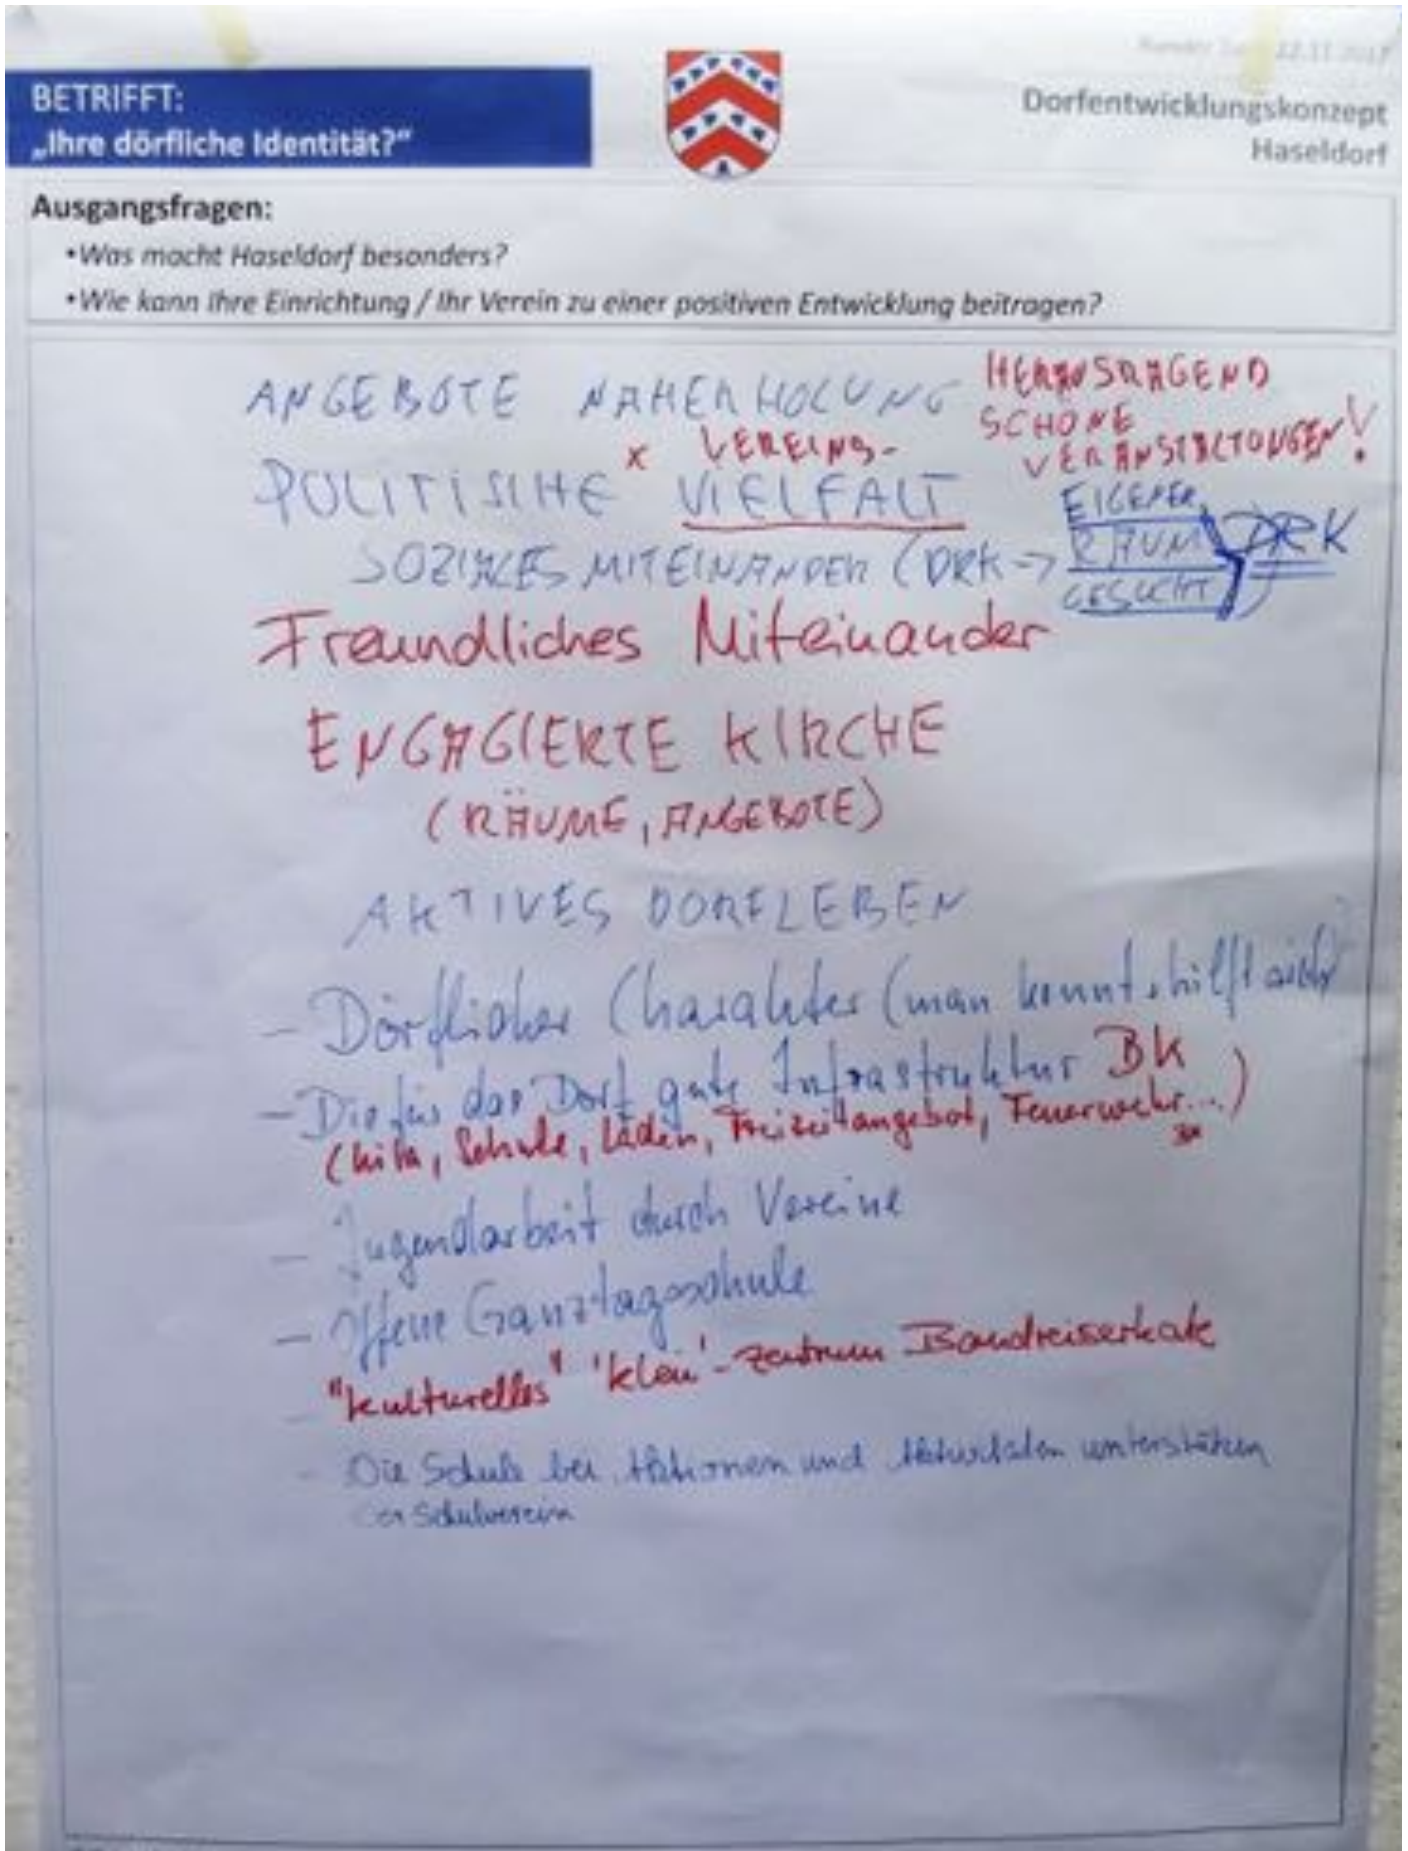 22.11.2017
BETRIFFT:
„Ihre dörfliche Identität?“
Dorfentwicklungskonzept
Haseldorf
Ausgangsfragen:
•Was macht Haseldorf besonders?
•Wie kann Ihre Einrichtung / Ihr Verein zu einer positiven Entwicklung beitragen?
ANGEBOTE NAHERHOLUNG
HERAUSRAGEND
SCHÖNE
VERANSTALTUNGEN!
x VEREINS-
POLITISCHE VIELFALT
SOZIALES MITEINANDER (DRK →
EIGENER
RAUM
GESUCHT)
DRK
Freundliches Miteinander
ENGAGIERTE KIRCHE
(RÄUME, ANGEBOTE)
AKTIVES DORFLEBEN
- Dörflicher Charakter (man kennt + hilft sich)
- Die für das Dorf gute Infrastruktur BK
(Kita, Schule, Läden, Freizeitangebot, Feuerwehr...)
- Jugendarbeit durch Vereine
- Offene Ganztagsschule
- "kulturelles" 'klein'-zentrum Bandreiserkate
- Die Schule bei Aktionen und Aktivitäten unterstützen
Schulverein